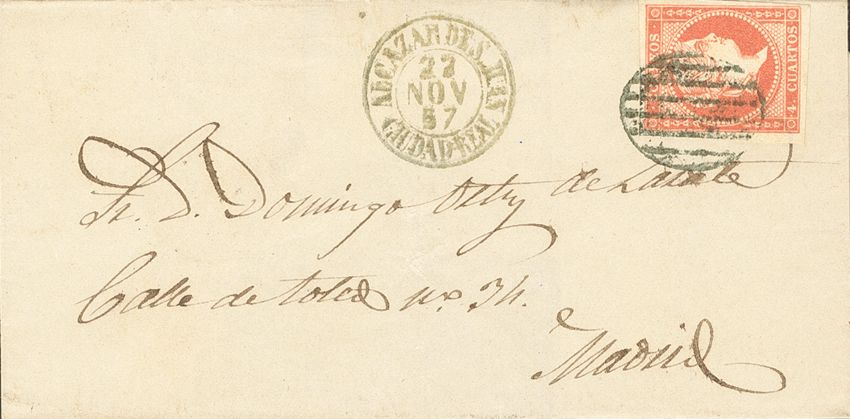 ALCAZAR DE S. JUAN
22
NOV
57
CIUDAD-REAL
4 CUARTOS
Sr. D. Domingo de
Calle de no. 34.
Madrid